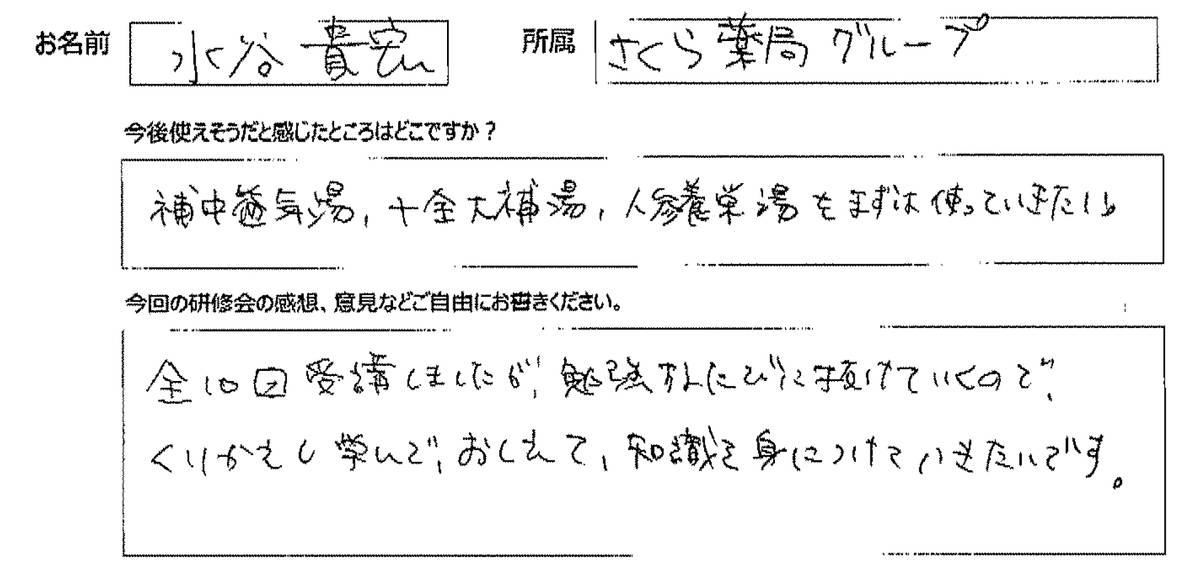 お名前 水谷 貴宏 所属 さくら薬局グループ
今後使えそうだと感じたところはどこですか？
補中益気湯, 十全大補湯, 人参養栄湯をまずは使っていきたい。
今回の研修会の感想、意見などご自由にお書きください。
全10回受講しましたが、勉強するたびに抜けていくので、
くりかえし学んで、おしえて、知識を身につけていきたいです。